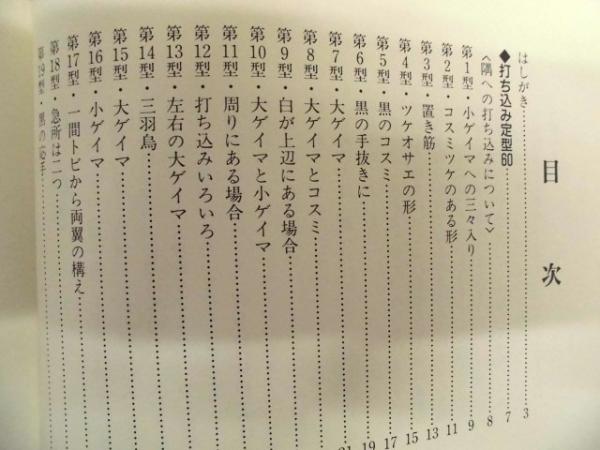 目次
はしがき……3
◆打ち込み定型60……7
〈隅への打ち込みについて〉……8
第1型・小ゲイマへの三々入り……9
第2型・コスミツケのある形……11
第3型・置き筋……13
第4型・ツケオサエの形……15
第5型・黒のコスミ……17
第6型・黒の手抜きに……19
第7型・大ゲイマ……21
第8型・大ゲイマとコスミ
第9型・白が上辺にある場合
第10型・大ゲイマと小ゲイマ
第11型・周りにある場合
第12型・打ち込みいろいろ
第13型・左右の大ゲイマ
第14型・三羽鳥
第15型・大ゲイマ
第16型・小ゲイマ
第17型・一間トビから両翼の構え
第18型・急所は二つ
第19型・黒の応手